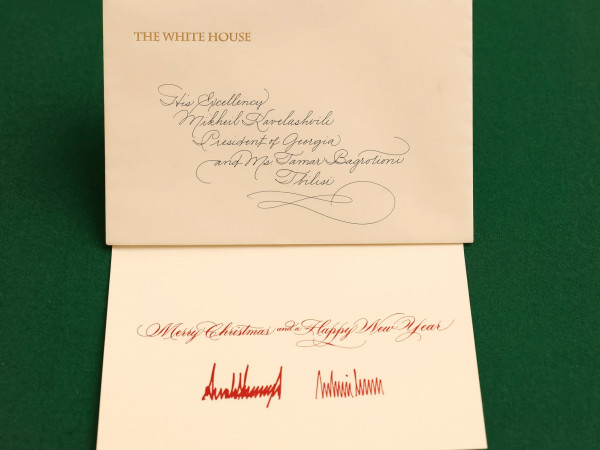 THE WHITE HOUSE
His Excellency
Mikheil Kavelashvili
President of Georgia
and Ms. Tamar Bagrationi
Tbilisi
Merry Christmas and a Happy New Year